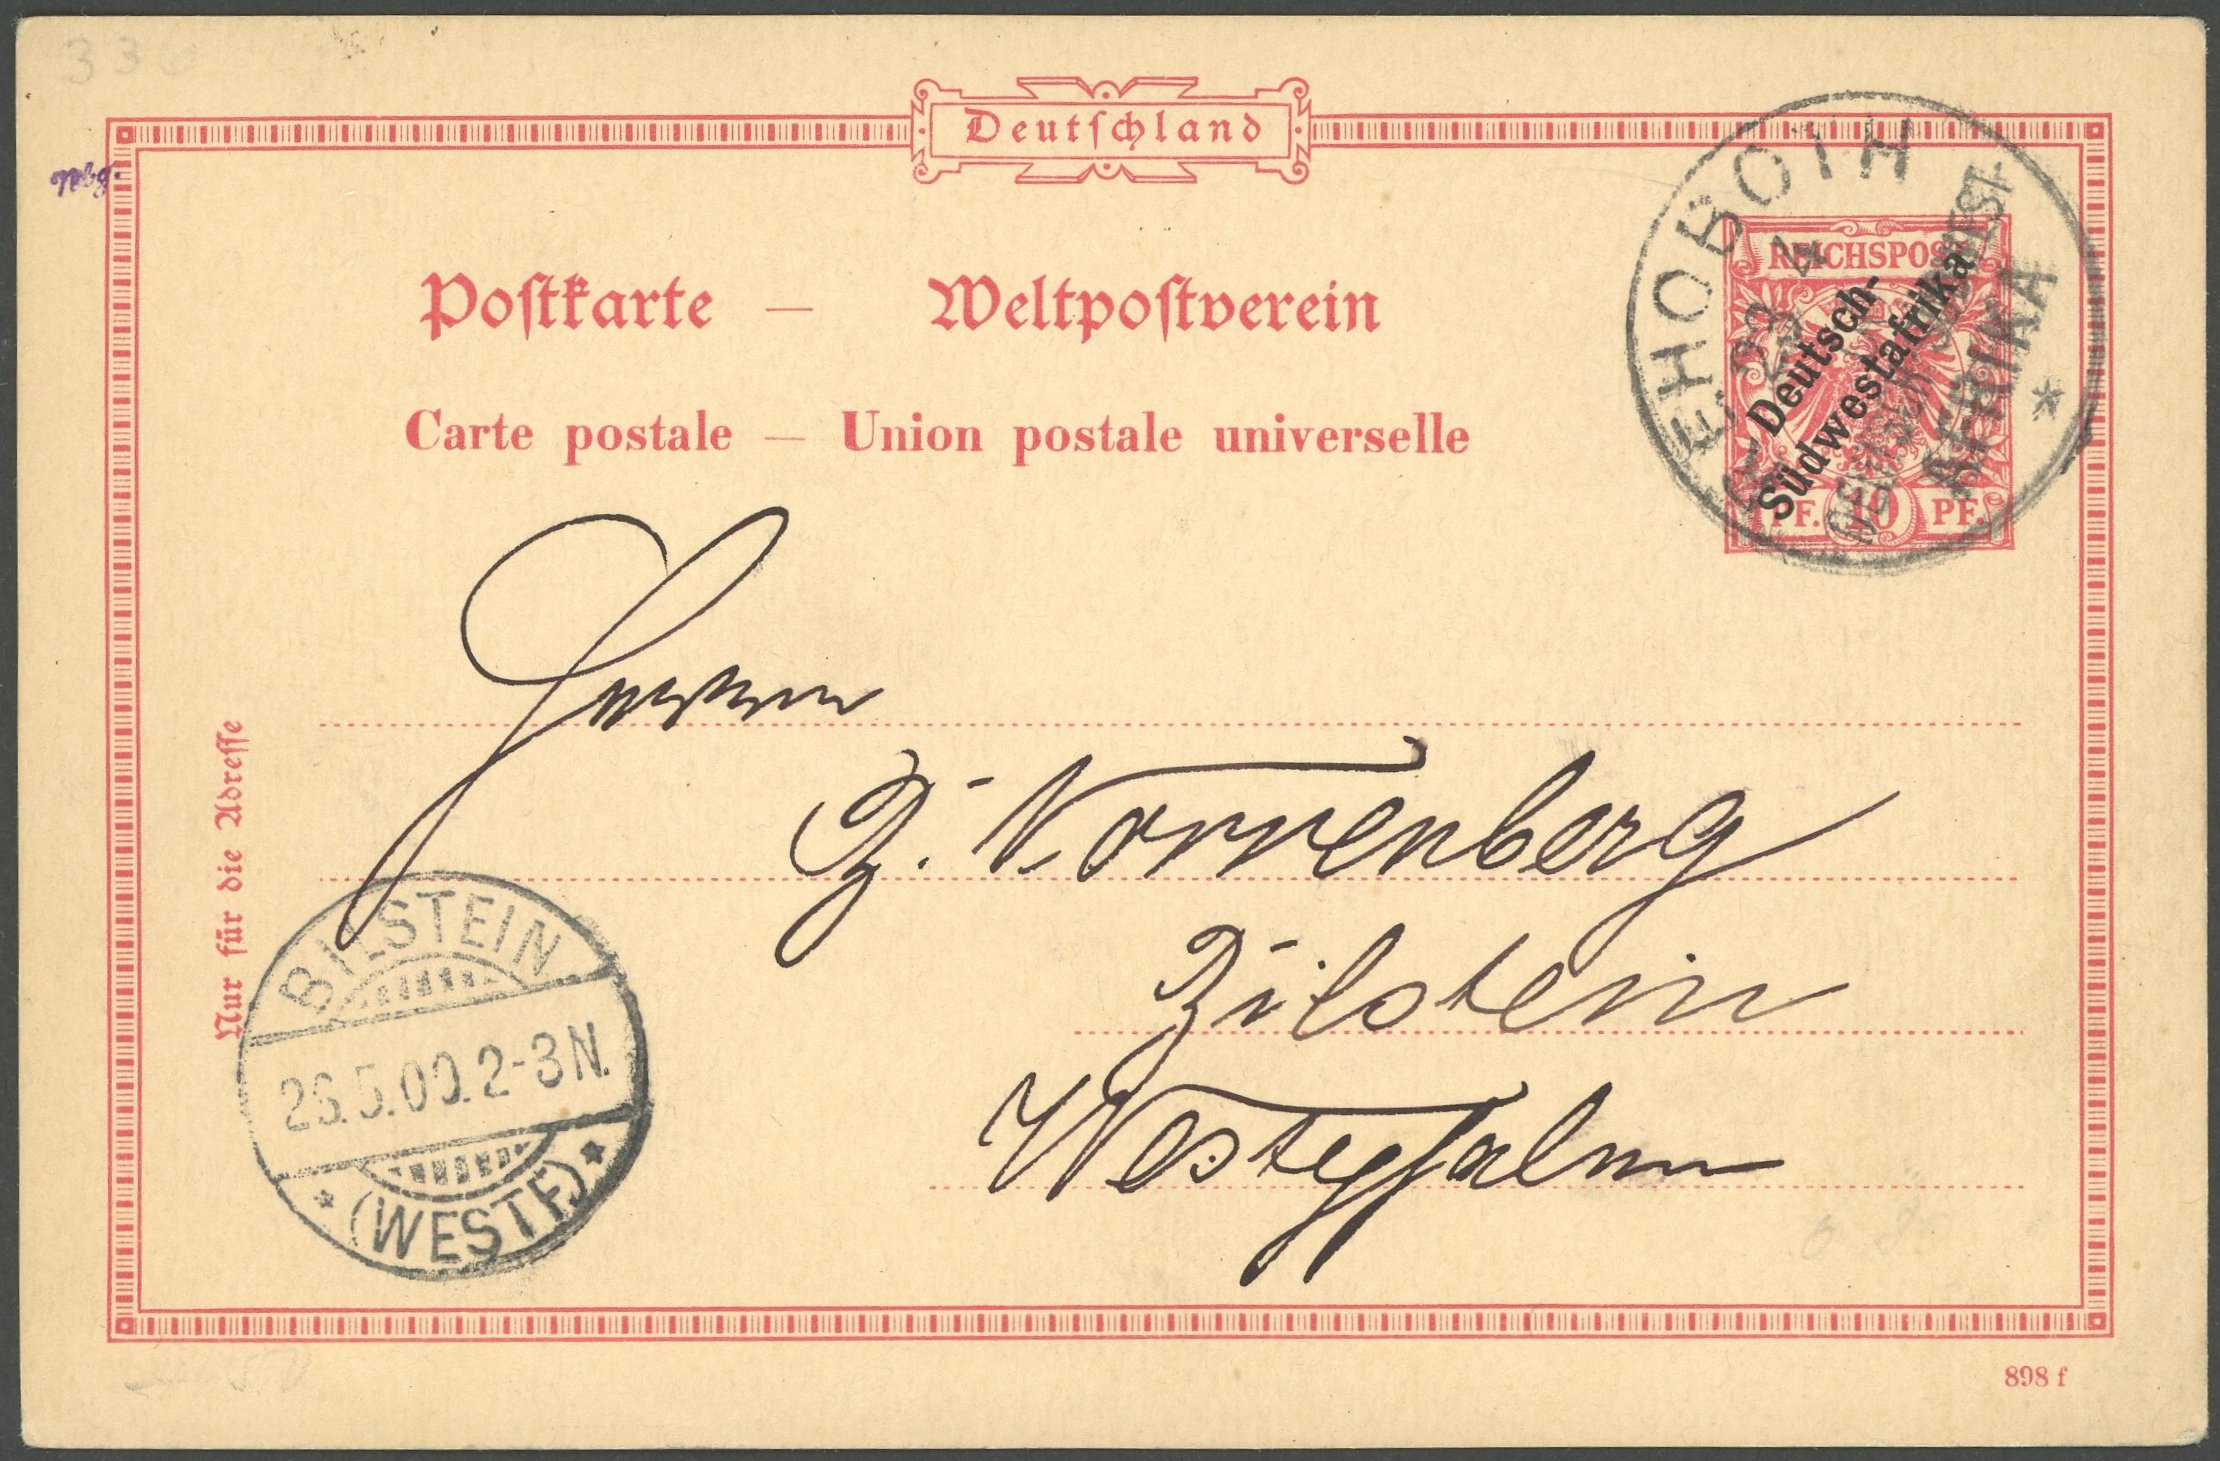 336
Deutschland
Nbg.
REHOBOTH
22 4
DEUTSCH-SÜDWEST-
AFRIKA
REICHSPOST
Deutsch-
Südwestafrika
PF. 10 PF.
Postkarte — Weltpostverein
Carte postale — Union postale universelle
Nur für die Adresse
Herrn
Z. Norrenberg
Bilstein
Westfalen
BILSTEIN
26.5.00.2-3N.
* (WESTF.) *
898 f